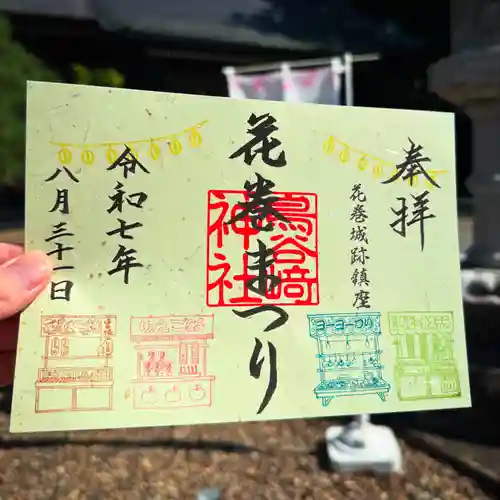 奉拝
花巻城跡鎮座
花巻まつり
鳥谷崎
神社
令和七年
八月三十一日
ヨーヨーつり
りんごあめ